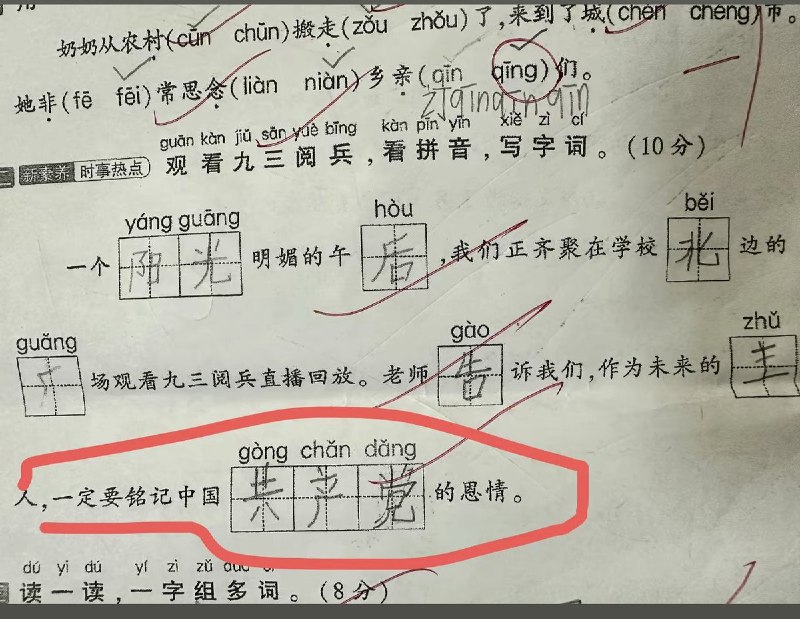 奶奶从农村(cūn chūn)搬走(zǒu zhǒu)了,来到了城(chén chéng)市。
她非(fē fēi)常思念(liàn niàn)乡亲(qīn qīng)们。
qīn qīn qīn
guān kàn jiǔ sān yuè bīng kàn pīn yīn xiě zì cí
新素养 时事热点 观看九三阅兵,看拼音,写字词。(10分)
yáng guāng hòu běi
一个阳光明媚的午后,我们正齐聚在学校北边的
guǎng gào zhǔ
广场观看九三阅兵直播回放。老师告诉我们,作为未来的主
gòng chǎn dǎng
人,一定要铭记中国共产党的恩情。
dú yi dú yí zì zǔ duō cí
读一读,一字组多词。(8分)